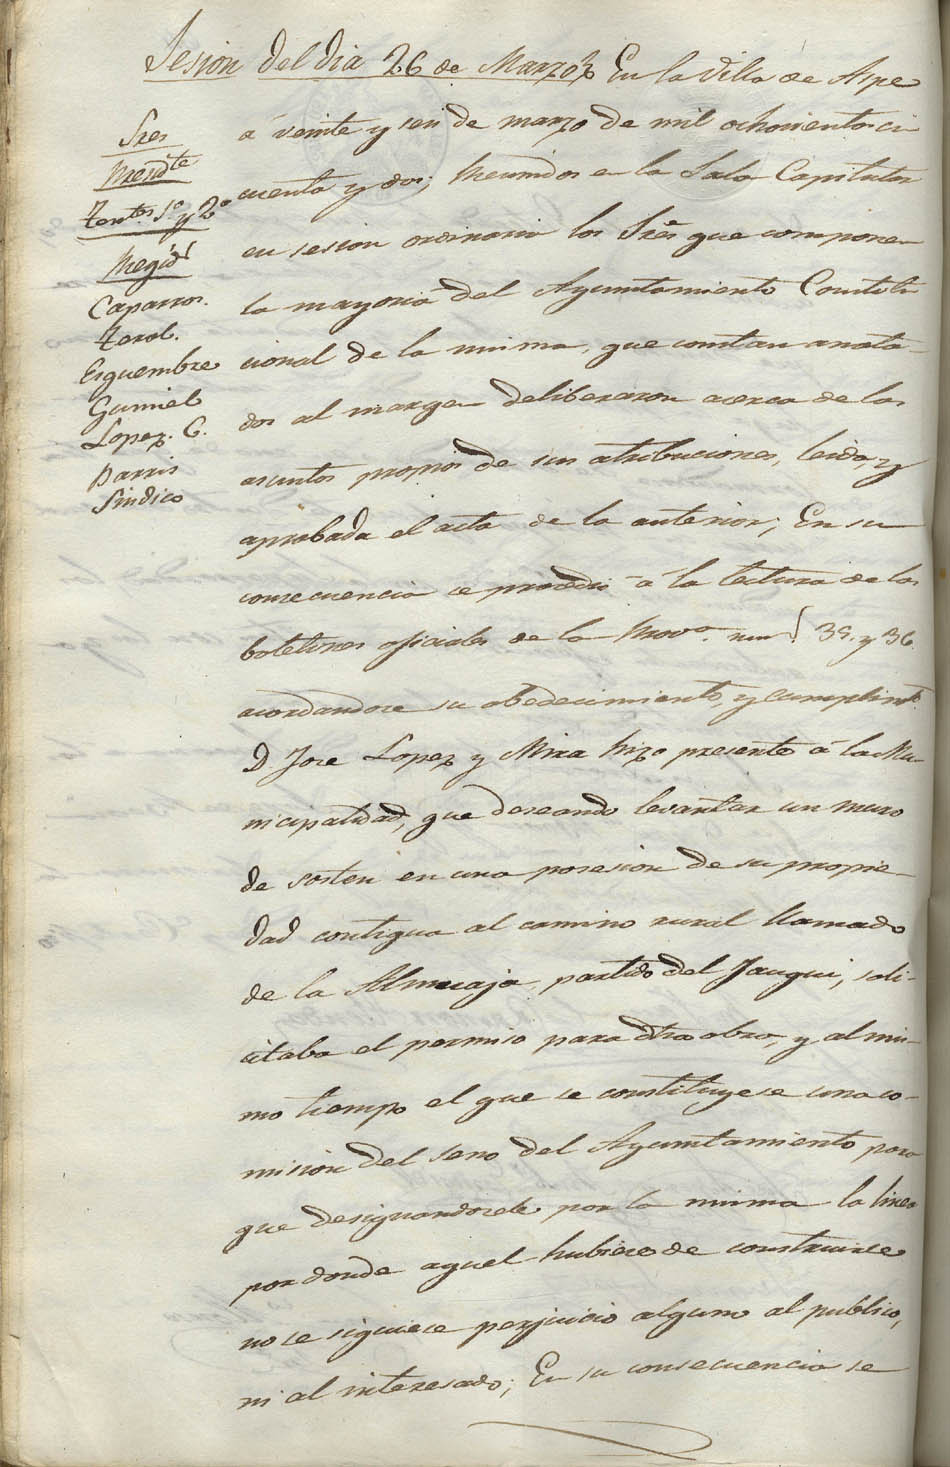 Sesion del dia 26 de Marzo En la Villa de Aspe
Sres
Presdte
Tentes 1º y 2º
Regids
Caparros.
Terol.
Esquembre
Gumiel
Lopez. C.
Parris
Sindico
á veinte y seis de marzo de mil ochocientos cin
cuenta y dos; Reunidos en la Sala Capitular
en sesion ordinaria los Sres que componen
la mayoria del Ayuntamiento Constitu
cional de la misma, que constan anota-
dos al margen deliberaron acerca de los
asuntos propios de sus atribuciones, leida, y
aprobada el acta de la anterior; En su
consecuencia se procedió á la lectura de los
boletines oficiales de la Prova. num 35. y 36.
acordandose su obedecimiento, y cumplimto.
D Jose Lopez y Mira hizo presente á la Mu-
nicipalidad, que deseando levantar un muro
de sosten en una posesion de su propie-
dad contigua al camino rural llamado
de la Almuaja, partido del Jauqui, soli-
citaba el permiso para dha obra, y al mis-
mo tiempo el que se constituyese una co-
mision del seno del Ayuntamiento para
que designandosele por la misma la linea
por donde aquel hubiese de construirse
no se siguiese perjuicio alguno al publico,
ni al interesado; En su consecuencia se